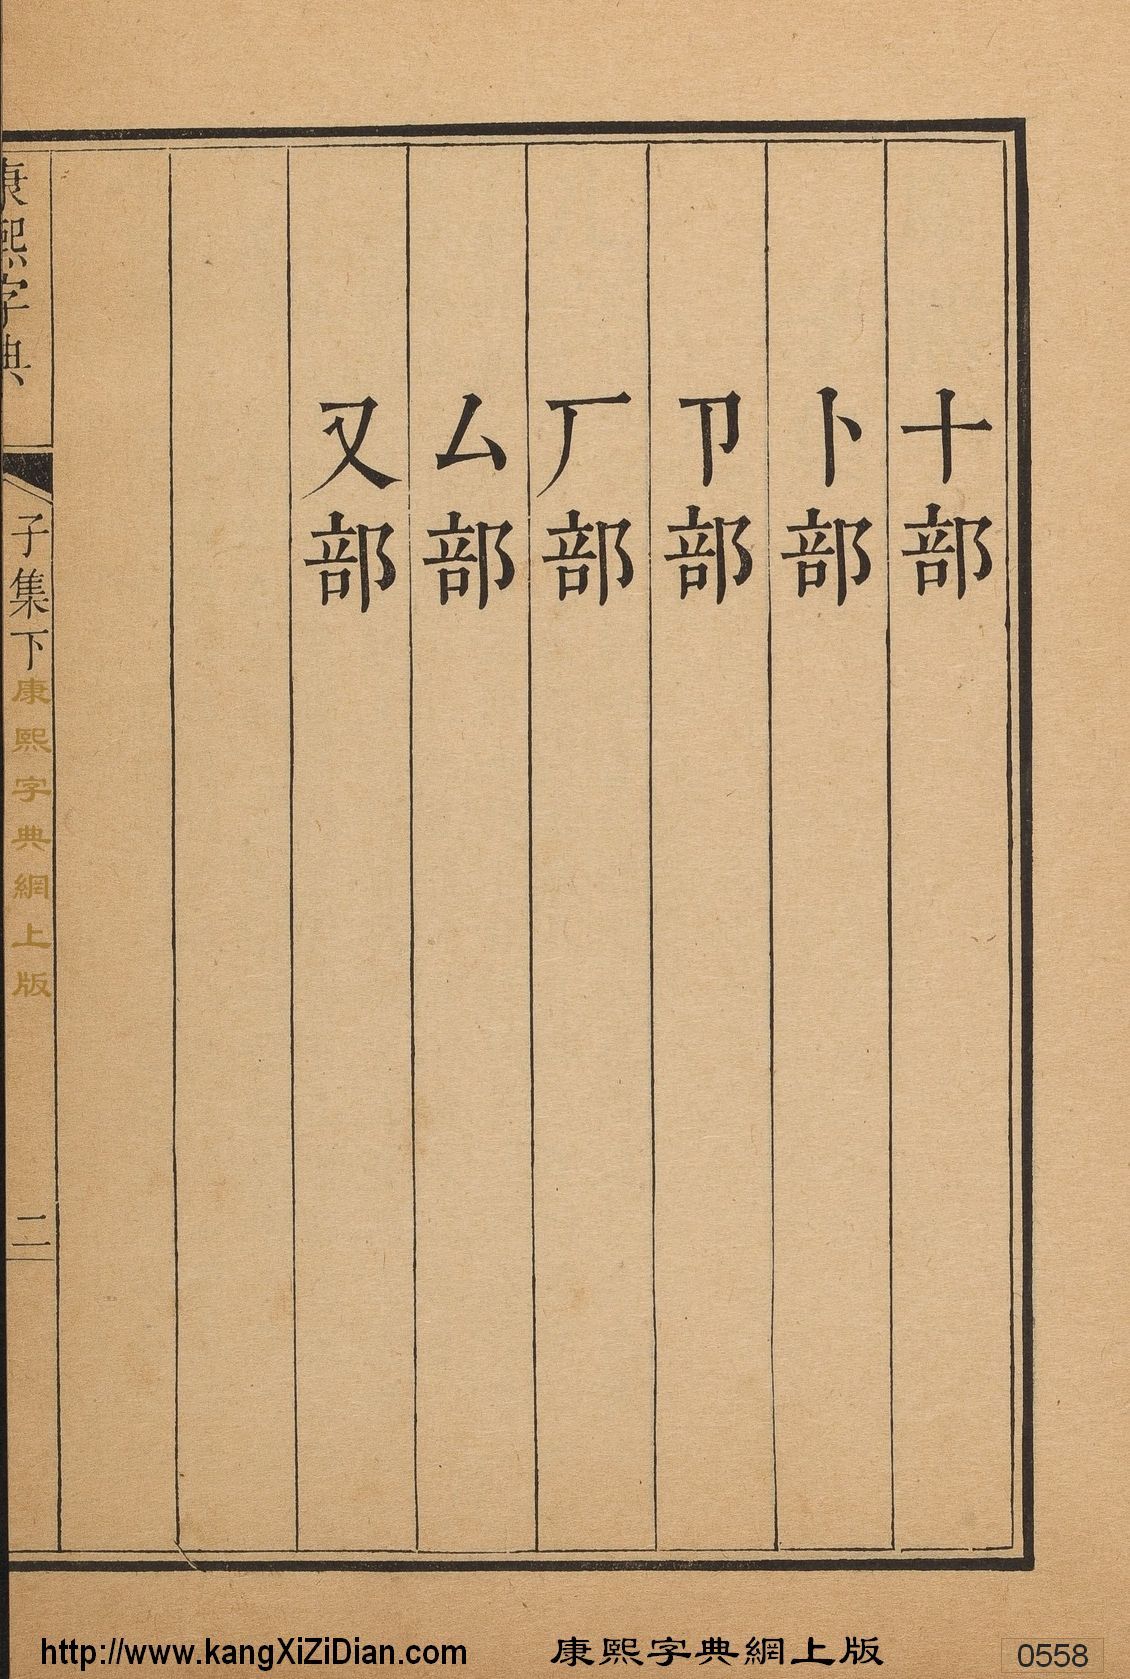 十部
卜部
卩部
厂部
厶部
又部
康熙字典
子集下
二
康熙字典網上版
http://www.kangXiZiDian.com
康熙字典網上版
0558